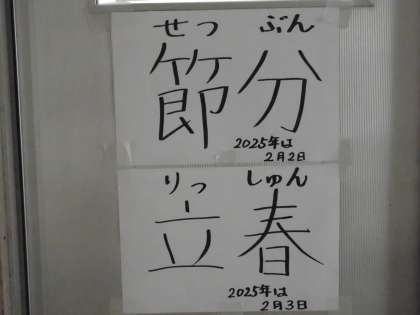 せつ ぶん
節分
2025年は
2月2日
りっ しゅん
立春
2025年は
2月3日